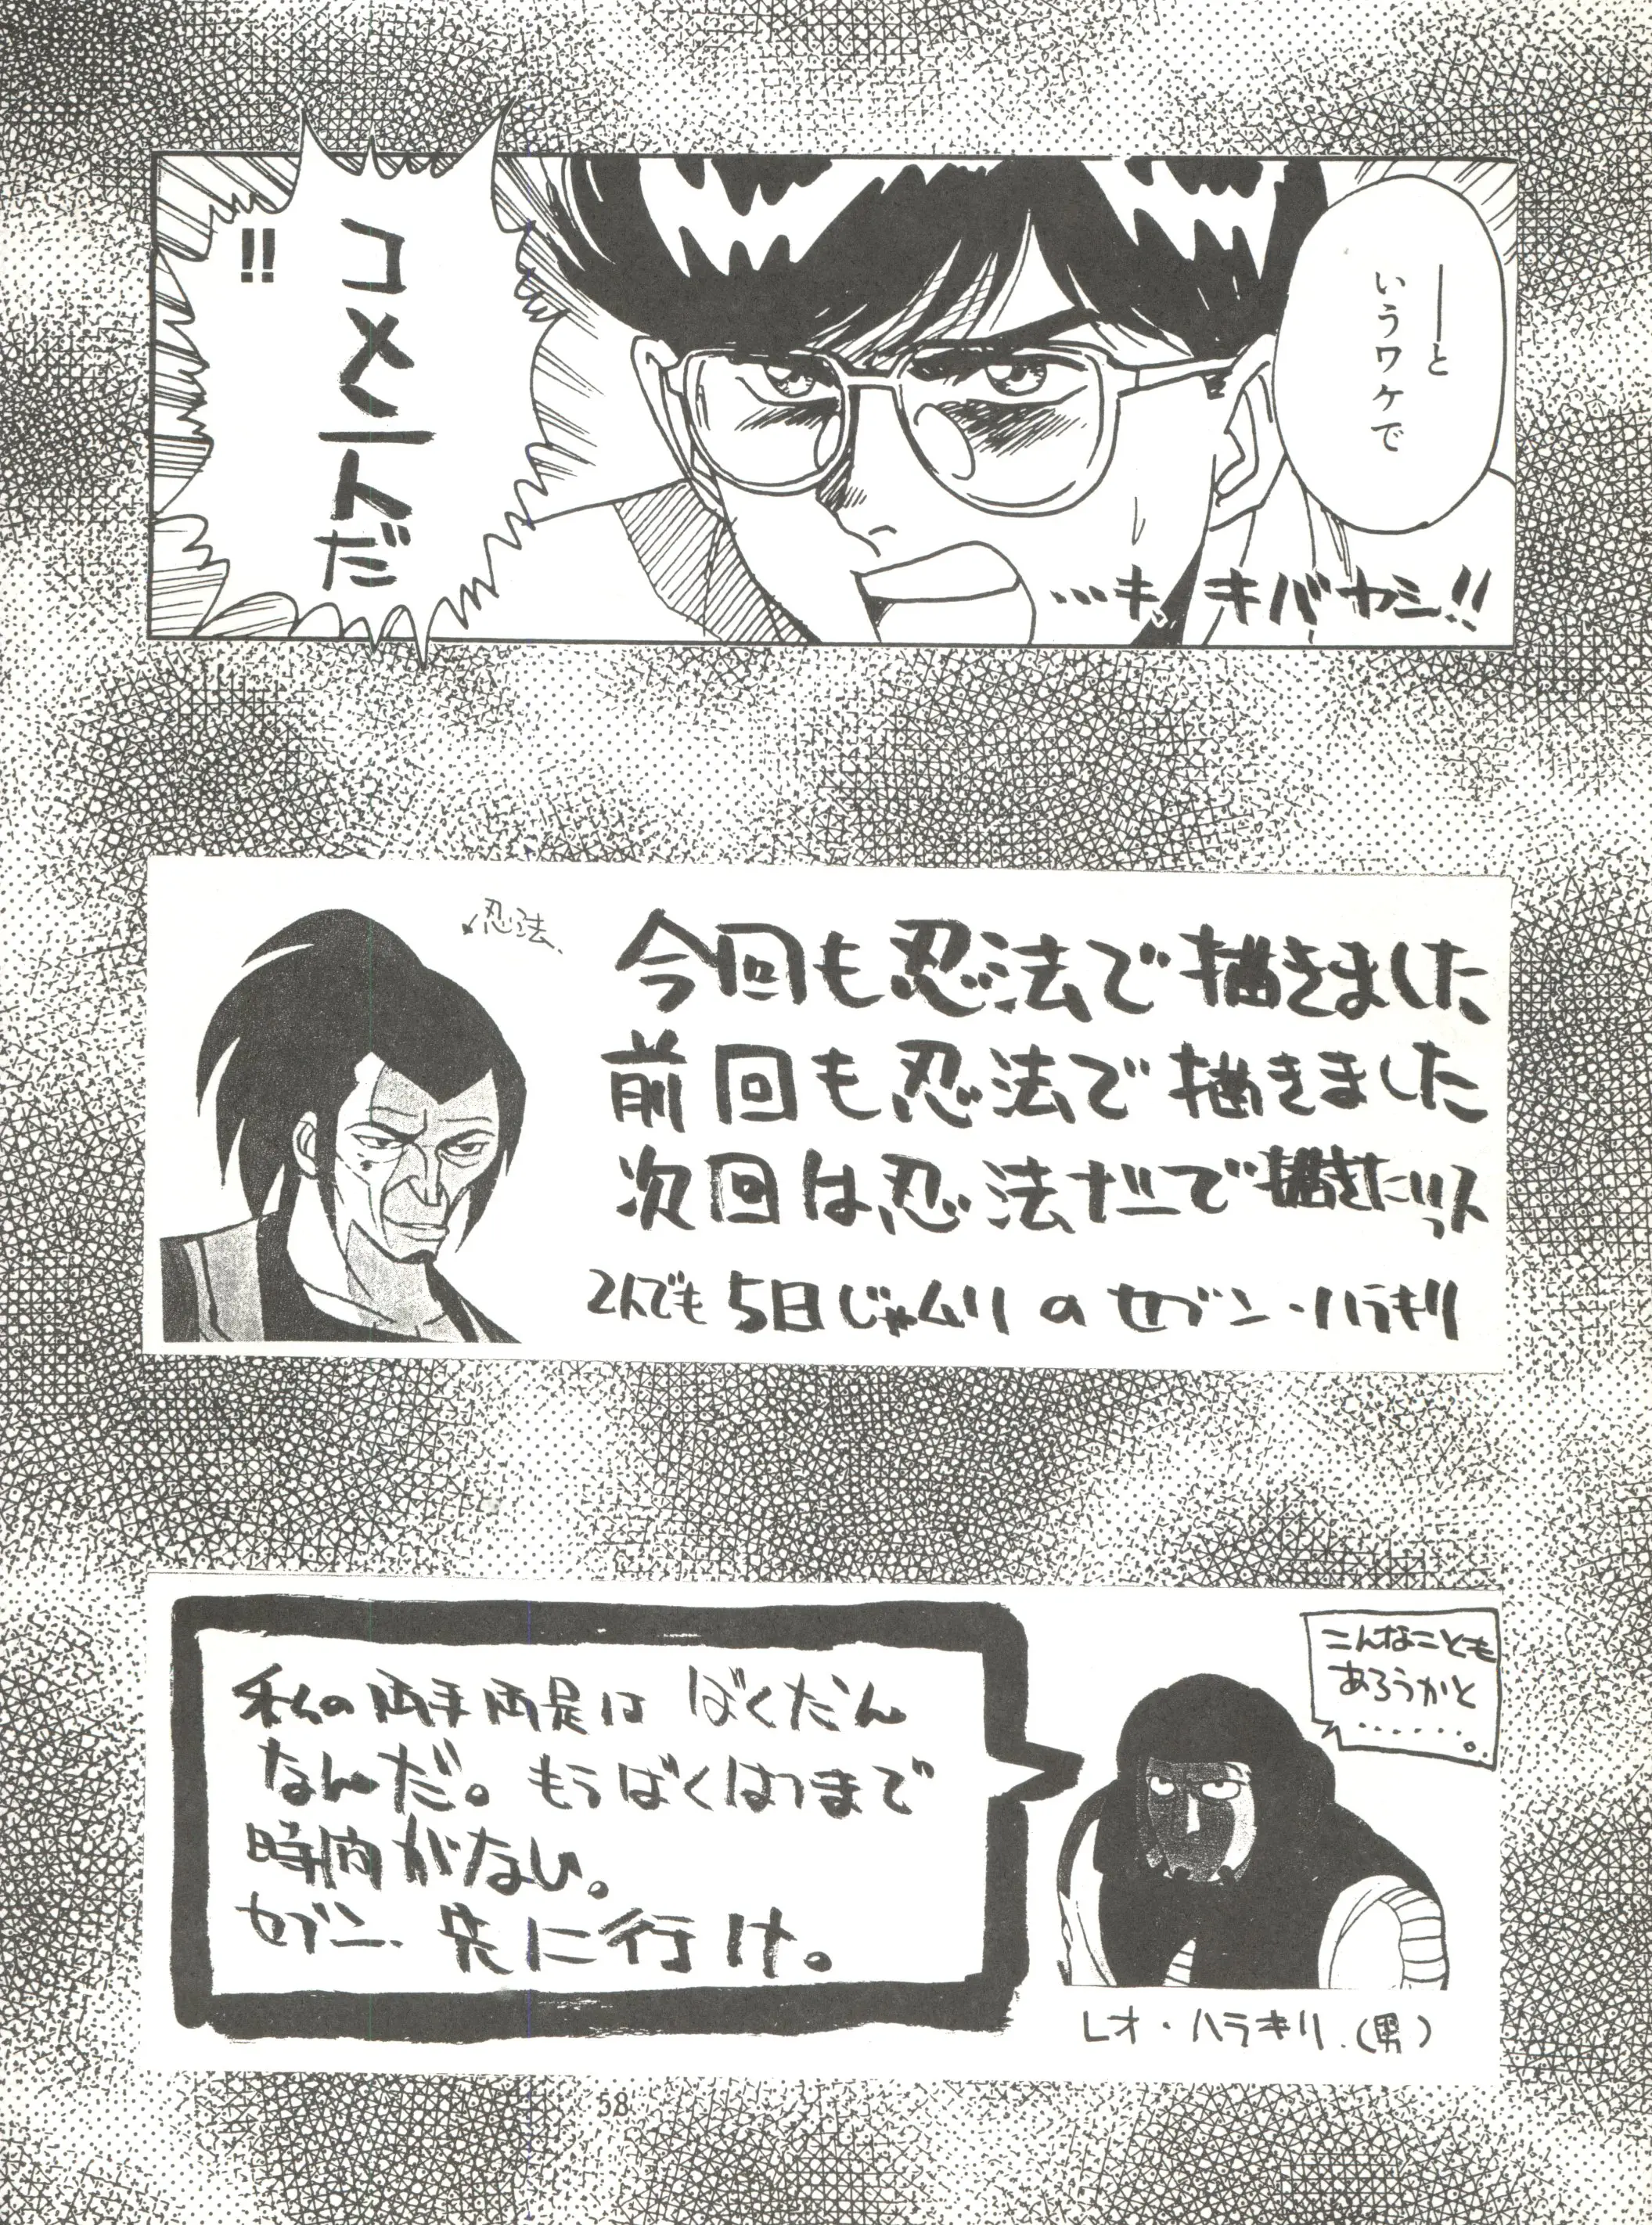 ――と
いうワケで
コメントだ
!!
…キ、キバヤシ!!
忍法
今回も忍法で描きました
前回も忍法で描きました
次回は忍法だーで描きたいッス
5日じゃムリのセブン・ハラキリ
こんなことも
あろうかと
………。
私の両手両足はばくだん
なんだ。もうばくはつまで
時間がない。
セブン、先に行け。
レオ・ハラキリ.(男)
58